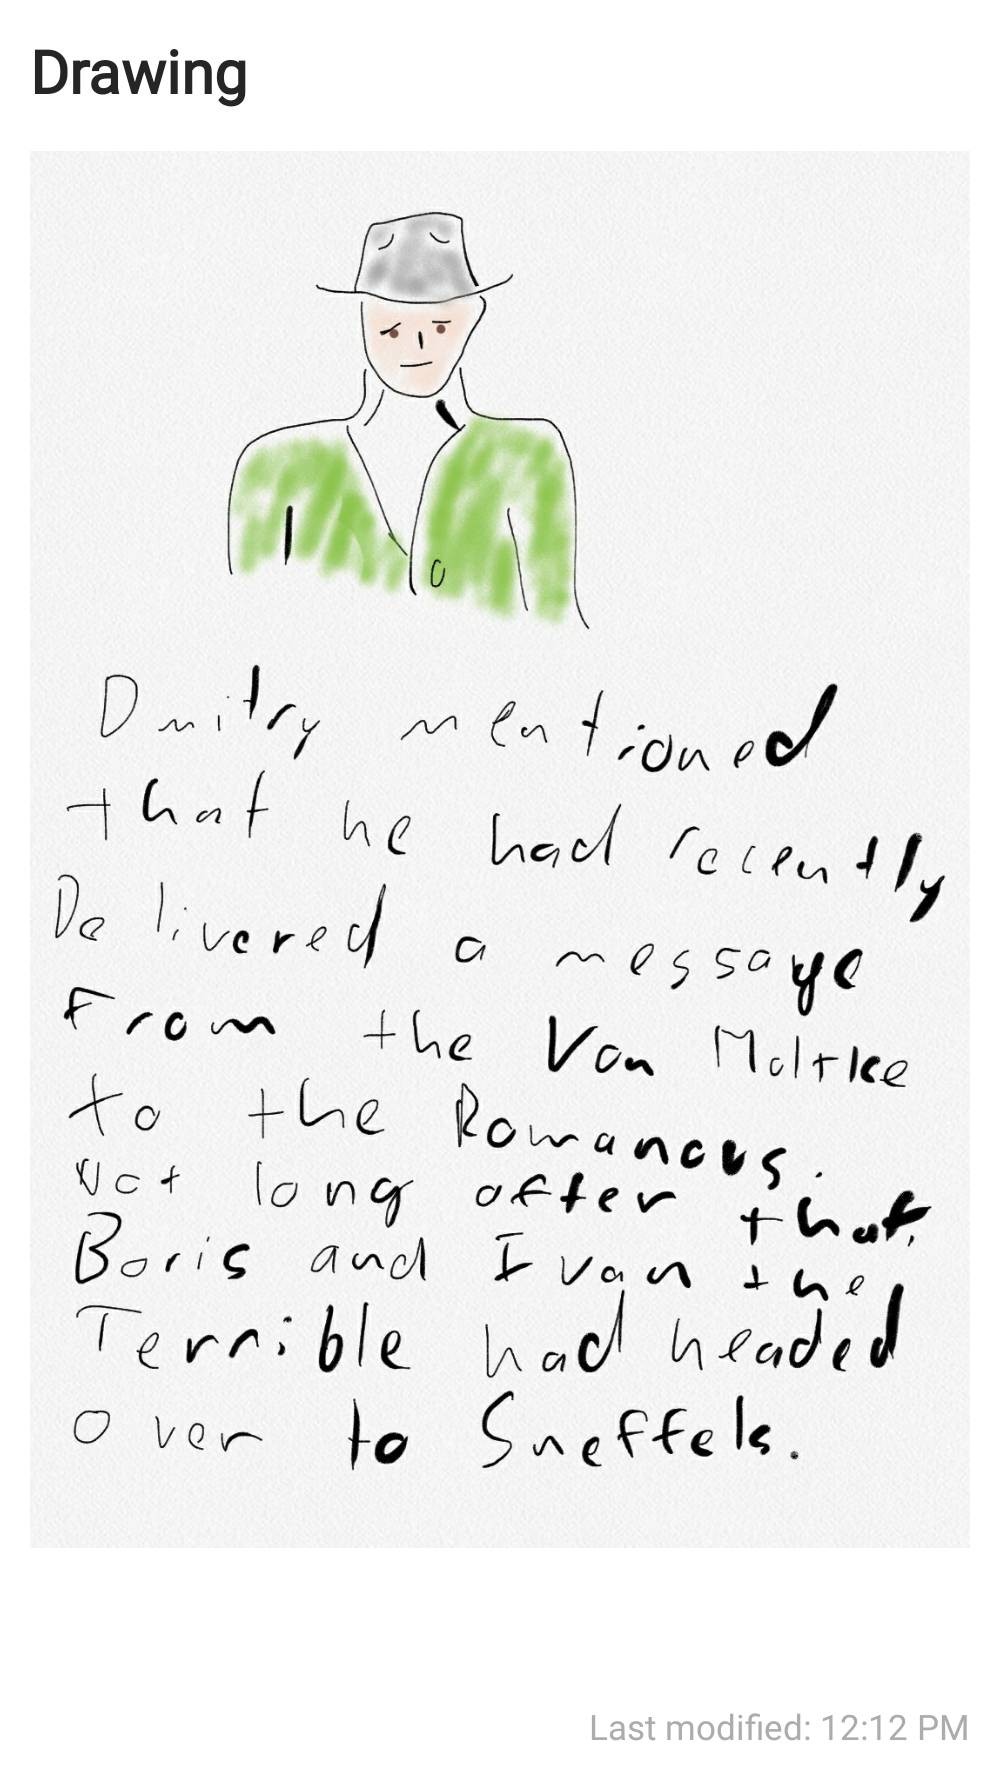 Drawing
Dmitry mentioned
that he had recently
Delivered a message
From the Von Moltke
to the Romanovs.
Not long after that,
Boris and Ivan the
Terrible had headed
over to Sneffels.
Last modified: 12:12 PM